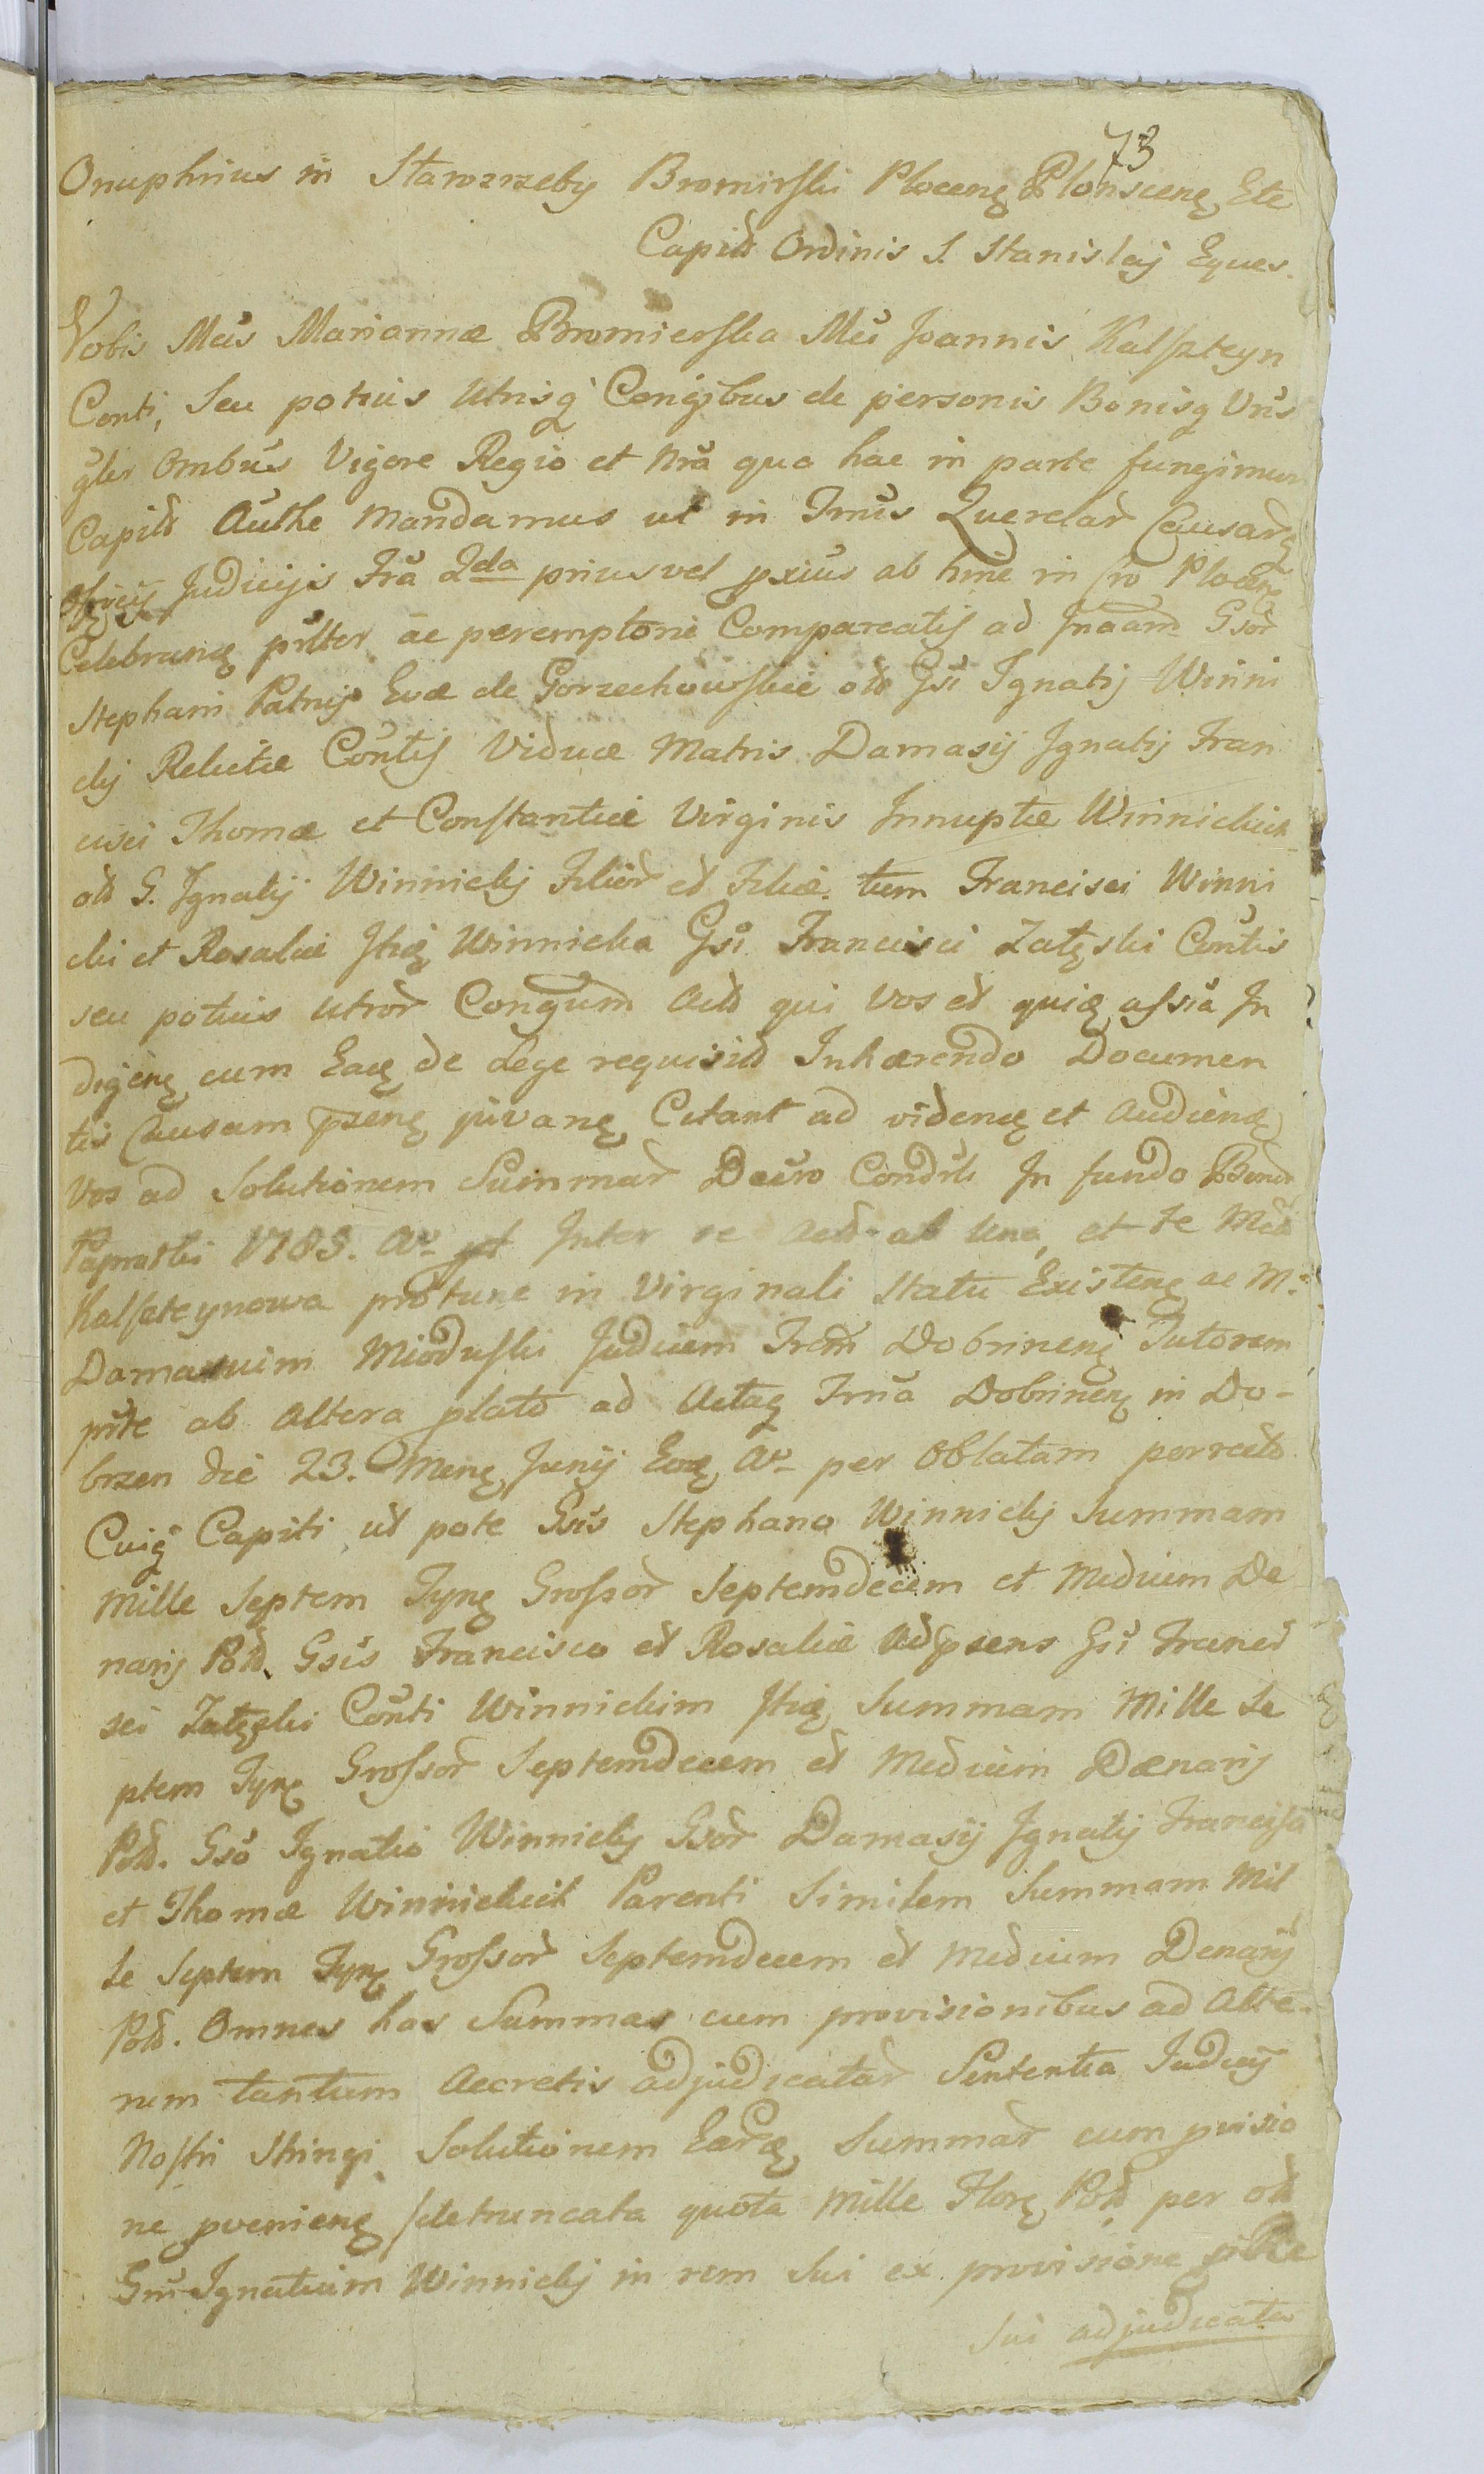 73
Onuphrius in Starozrzeby Bromirski Plocenę Plonscenę Etc
Capits Ordinis S. Stanislaj Eques.
Vobis Mcis Mariannæ Bromierska Mci Joannis Kalszteyn
Conti, Seu potius Utrisq Conijbus de personis Bonisq Vris
gler Ombus Vigore Regio et Nra qua hac in parte fungimur
Capits Authe Mandamus ut in Trmis Querelar Causarq
Officÿ Judicijs Fra 2da prius vel pxius ab hinc in Cro Plocenę
Celebranę psltter ac peremptorie Compareatis ad Jnaam Gsor
Stephani Patruj Evæ de Gorzechowskie ols Gsi Ignatij Winni
ckj Relictæ Contis Viduæ Matris Damasij Jgnatij Fran
cisci Thomæ et Constantiæ Virginis Jnnuptæ Winnickich
ols G. Jgnatij Winnickj Filior et Filiæ. tum Francisci Winni
cki et Rosaliæ Jtię Winnicka Gsi Francisci Zatęski Contis
seu potius Utror Congum Acts qui Vos et quię assia Jn
digenę cum Eaę de Lege requisit Inhærendo Documen
tis Causam pzenę juvanę Citant ad videnę et Audienę
Vos ad Solutionem Summar Decro Condsli Jn fundo Bonor
Paprotki 1785. Ao Inter se Acts ab Una, et te Mcia
Kalszteynowa protunc in Virginali Statu Existenę ac M.
Damasium Mioduski Judicem Trem Dobrinenę Tutorem
prte ab Altera plato ad Actaq Trria Dobrinenę in Do-
brzen die 23. Menę Junij Eoę Ao per Oblatam porrecto
Cuiq Capiti ut pote Gsis Stephano Winnickj Summam
Mille Septem Tynę Grossor Septemdecem et Medium De
narij Pols. Gsis Francisco et Rosaliæ Adpsens Gsi Franci
sci Zatęski Conti Winnickim Jtię Summam Mille Se
ptem Tynę Grossor Septemdecem et Medium Dænarij
Pols. Gso Ignatio Winnickj Gsor Damasij Jgnatij Francisci
et Thomæ Winnickich Parenti Similem Summam Mil
le Septem Tynę Grossor Septemdecem et Medium Denarij
Pols. Omnes has Summas cum provisionibus ad Alte-
rum tantum Accretis adjudicatar Sententia Judicij
Nostri Stringi, Solutionem Earę Summar cum pvisio
ne pvenienę /detruncata quota Mille Florę Pols, per ols
Gm Ignatium Winnickj in rem Sui ex provisione pt
Sui adjudicata